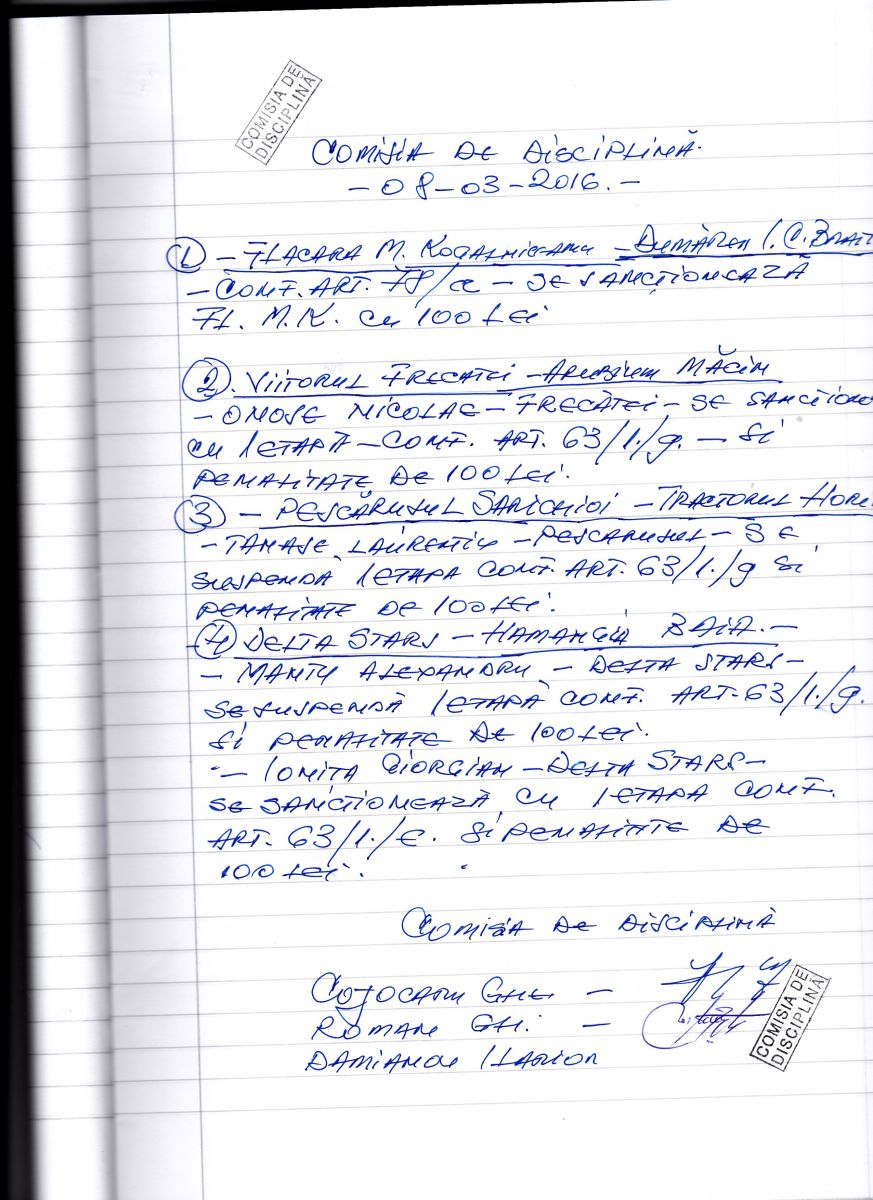 COMISIA DE
DISCIPLINĂ
COMISIA DE DISCIPLINĂ.
- 08-03-2016. -
1 - FLACARA M. KOGALNICEANU - DUNĂREA I. C. BRATI
- CONF. ART. 78/a - SE SANCȚIONEAZĂ
FL. M.K. CU 100 LEI
2. VIITORUL FRECATEI - ARUBIUM MĂCIN
- OMOSE NICOLAE - FRECĂTEI - SE SANCTIONE
CU 1 ETAPĂ - CONF. ART. 63/1./g. - SI
PENALITATE DE 100 LEI.
3 - PESCĂRUSUL SARICHIOI - TRACTORUL HORI
- TANASE LAURENTIU - PESCARUSUL - SE
SUSPENDĂ 1 ETAPA CONF. ART. 63/1./g SI
PENALITATE DE 100 LEI.
4 DELTA STARS - HAMANGIA BAIA. -
- MANTU ALEXANDRU - DELTA STARS -
SE SUSPENDĂ 1 ETAPĂ CONF. ART. 63/1./g.
SI PENALITATE DE 100 LEI.
- IONITA GIORGIAN - DELTA STARS -
SE SANCTIONEAZĂ CU 1 ETAPA CONF.
ART. 63/1./E. SI PENALITATE DE
100 LEI.
COMISIA DE DISCIPLINĂ
COJOCARU GHE. -
ROMAN GH. -
DAMIANOV ILARION
COMISIA DE
DISCIPLINĂ